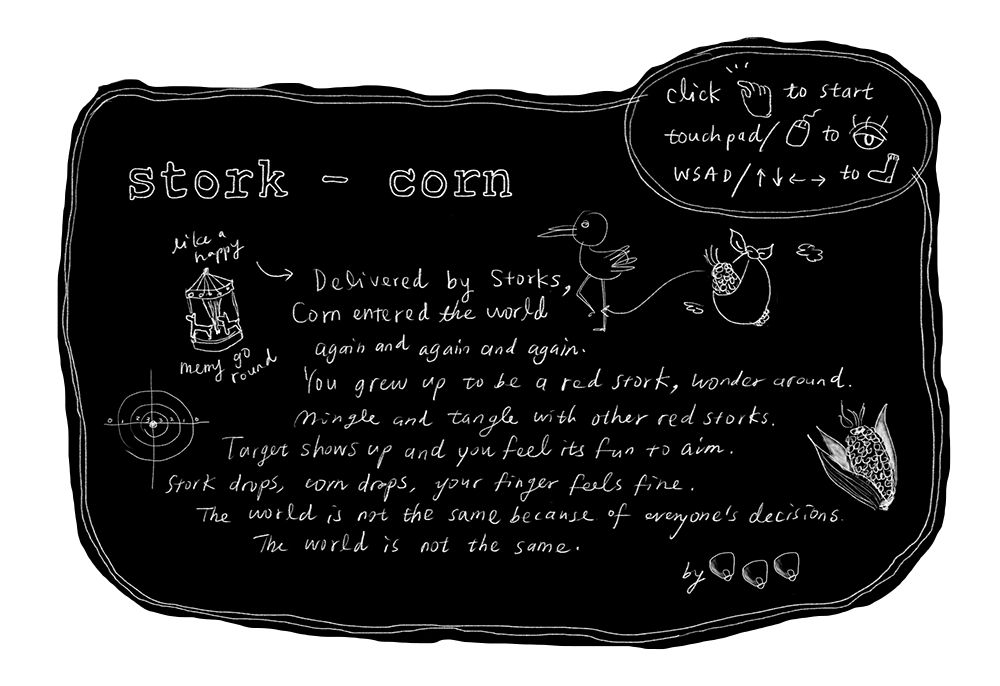 click to start
touchpad/ to
WSAD/↑↓←→ to
stork - corn
like a
happy
merry go
round
Delivered by Storks,
Corn entered the world
again and again and again.
You grew up to be a red stork, wonder around.
Mingle and tangle with other red storks.
Target shows up and you feel its fun to aim.
Stork drops, corn drops, your finger feels fine.
The world is not the same because of everyone's decisions.
The world is not the same.
by